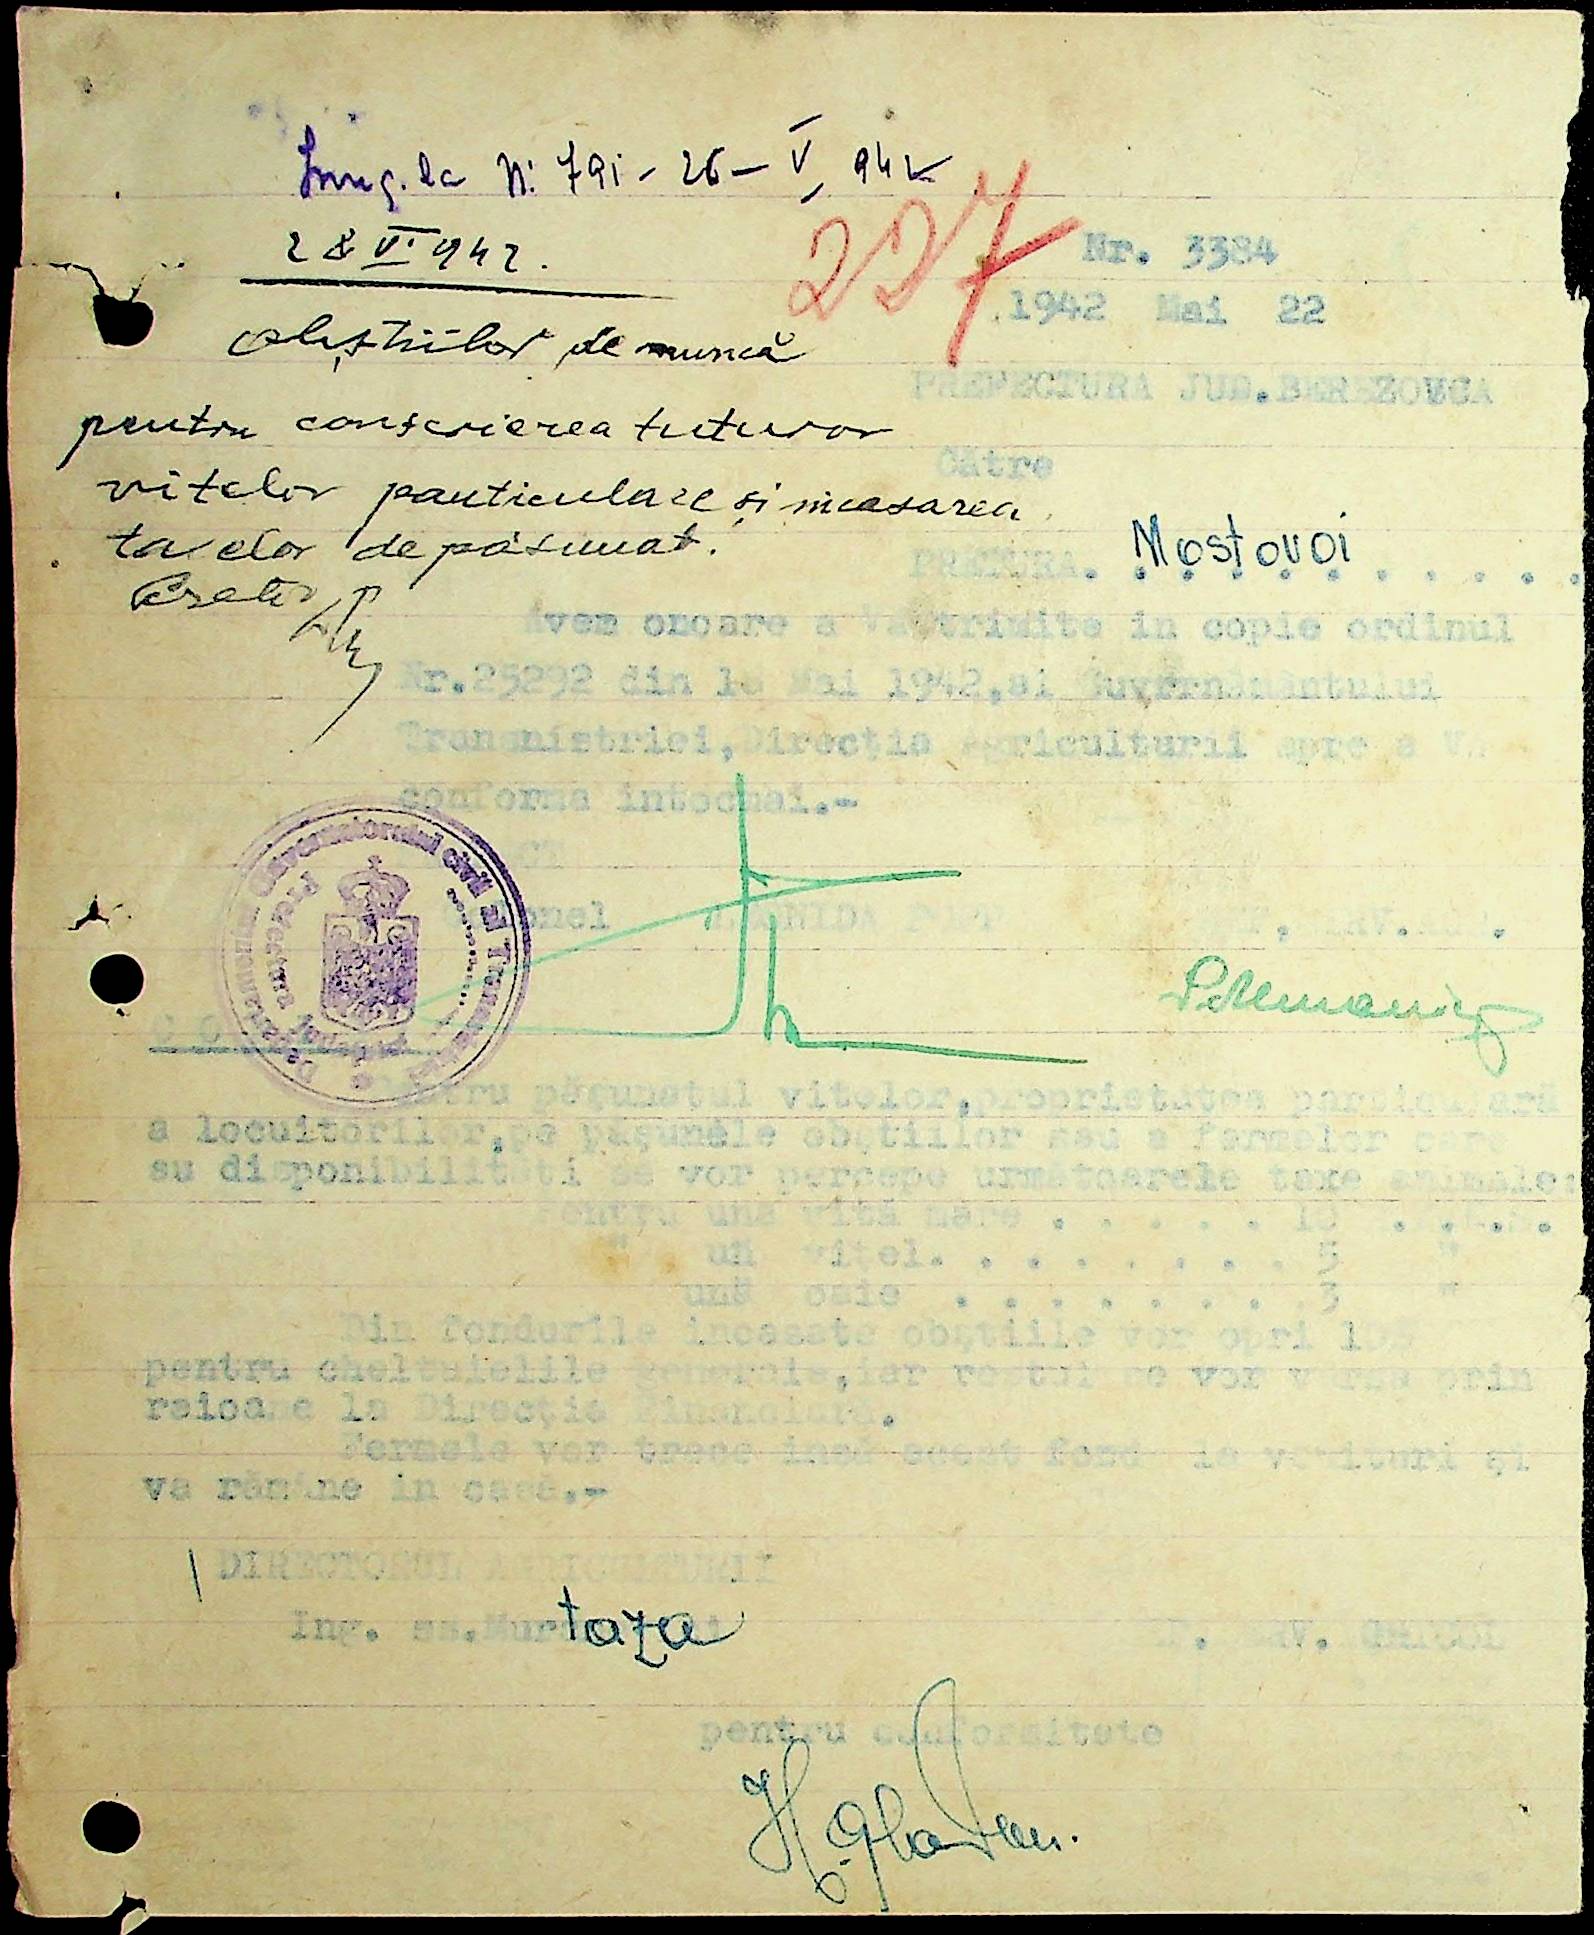 Înreg. la N: 791 - 26 - V 942
28 V. 942.
227
Nr. 3384
1942 Mai 22
obștiilor de muncă
pentru conscrierea tuturor
vitelor particulare și incasarea
taxelor de pășunat.
Pretor
PREFECTURA JUD. BEREZOVCA
Către
PRETURA. Mostovoi
Avem onoare a Va trimite in copie ordinul
Nr. 25292 din Mai 1942, al Guvernământului
Transnistriei, Direcția Agriculturii spre a Vă
conforma intocmai.-
Colonel LEONIDA POP
ȘEF. SERV.
Guvernatorului civil al Transnistriei
Prefectura județului
Pentru pășunatul vitelor, proprietatea particulară
a locuitorilor, pe pășunele obștiilor sau a fermelor care
au disponibilități se vor percepe urmatoarele taxe animale:
Pentru una vită mare . . . . . . 10
" un vițel. . . . . . . . . 5 "
ună oaie . . . . . . . . 3 "
Din fondurile incasate obștiile vor opri 10%
pentru cheltuielile generale, iar restul se vor varsa prin
raioane la Direcția Financiară.
Fermele vor trece insă acest fond la venituri și
va rămâne in casă.-
DIRECTORUL AGRICULTURII
Ing. ss. Murtaza
ȘEF. SERV.
pentru conformitate